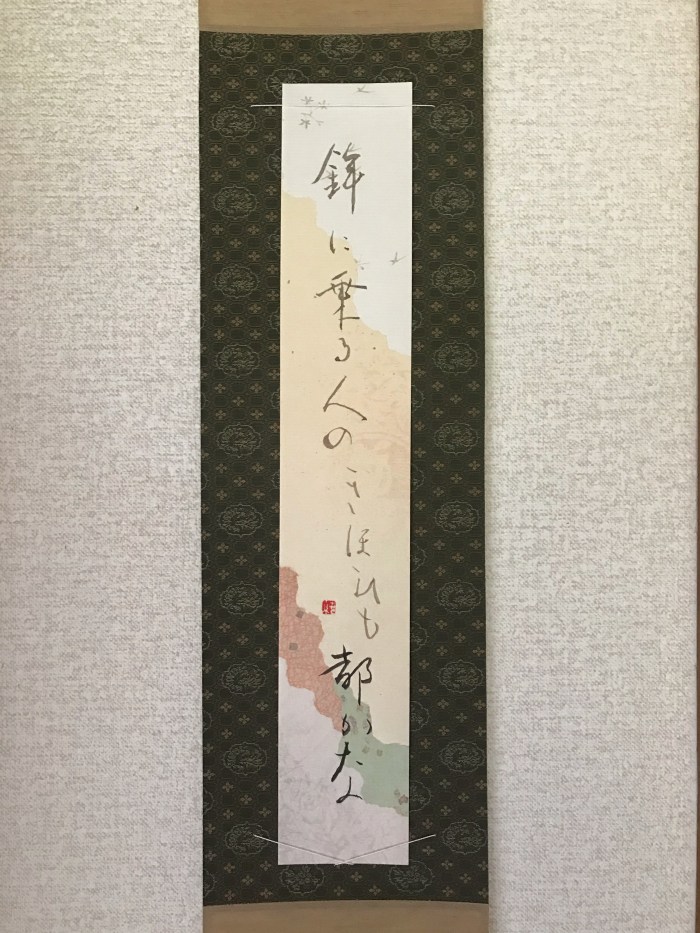 鉾に乗る人のきほひも都かな